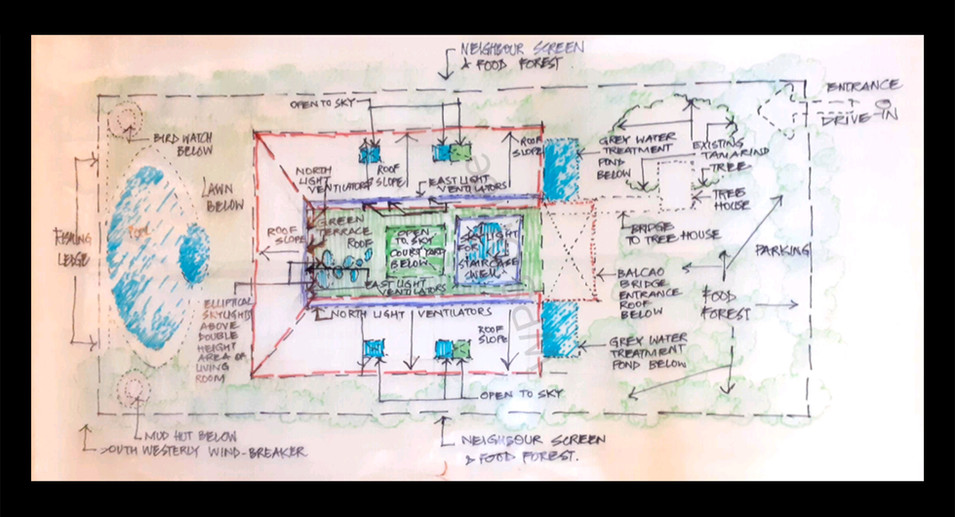 NEIGHBOUR SCREEN
& FOOD FOREST.
ENTRANCE
DRIVE-IN
OPEN TO SKY
BIRD WATCH
BELOW
LAWN
BELOW
NORTH
LIGHT
VENTILATORS
ROOF
SLOPE
EAST LIGHT
VENTILATORS
ROOF
SLOPE
GREY WATER
TREATMENT
POND
BELOW
EXISTING
TAMARIND
TREE
TREE
HOUSE
BRIDGE
TO TREE HOUSE
PARKING
FISHING
LEDGE
POOL
ROOF
SLOPE
GREEN
TERRACE
ROOF
OPEN
TO SKY
COURTYARD
BELOW
SKYLIGHT
FOR
STAIRCASE
WELL
EAST LIGHT
VENTILATORS
BALCAO
BRIDGE
ENTRANCE
ROOF
BELOW
FOOD
FOREST
ELLIPTICAL
SKYLIGHTS
ABOVE
DOUBLE
HEIGHT
AREA OF
LIVING
ROOM
NORTH LIGHT VENTILATORS
ROOF
SLOPE
GREY WATER
TREATMENT
POND BELOW
OPEN TO SKY
MUD HUT BELOW
SOUTH WESTERLY WIND-BREAKER
NEIGHBOUR SCREEN
& FOOD FOREST.